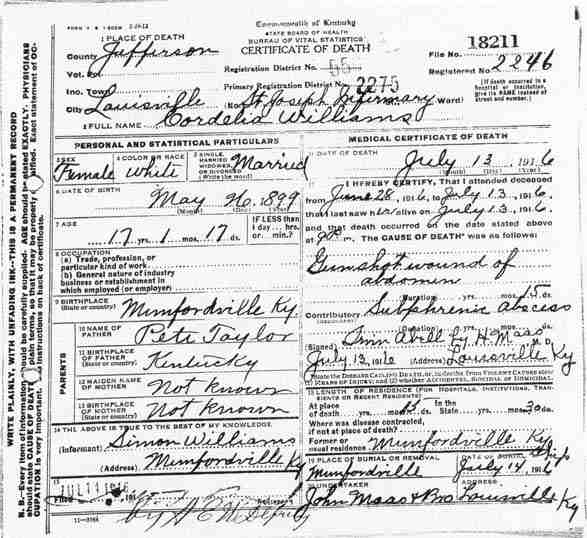 Commonwealth of Kentucky
STATE BOARD OF HEALTH
BUREAU OF VITAL STATISTICS
CERTIFICATE OF DEATH
1 PLACE OF DEATH
County Jefferson
Vot. Pct.
Inc. Town
City Louisville (No. St Joseph Infirmary Ward)
Registration District No. 55
Primary Registration District No. 2275
File No. 18211
Registered No. 2246
[If death occurred in a hospital or institution, give its NAME instead of street and number.]
2 FULL NAME Cordelia Williams
PERSONAL AND STATISTICAL PARTICULARS
3 SEX Female
4 COLOR OR RACE White
5 SINGLE, MARRIED, WIDOWED, OR DIVORCED (Write the word) Married
6 DATE OF BIRTH
May 1899
(Month) (Day) (Year)
7 AGE
17 yrs. 1 mos. 17 ds.
IF LESS than 1 day ... hrs. or min.?
8 OCCUPATION
(a) Trade, profession, or particular kind of work
(b) General nature of industry business or establishment in which employed (or employer)
9 BIRTHPLACE (State or country) Munfordville Ky
PARENTS
10 NAME OF FATHER Pete Taylor
11 BIRTHPLACE OF FATHER (State or country) Kentucky
12 MAIDEN NAME OF MOTHER Not known
13 BIRTHPLACE OF MOTHER (State or country) Not known
14 THE ABOVE IS TRUE TO THE BEST OF MY KNOWLEDGE
(Informant) Simon Williams
(Address) Munfordville Ky
15
Filed JUL 14 1916
Deputy
11-3184
MEDICAL CERTIFICATE OF DEATH
16 DATE OF DEATH
July 13, 1916
(Month) (Day) (Year)
17 I HEREBY CERTIFY, That I attended deceased
from June 28, 1916, to July 13, 1916,
that I last saw her alive on July 13, 1916,
and that death occurred on the date stated above
at m. The CAUSE OF DEATH* was as follows:
Gunshot wound of
abdomen
(Duration) yrs. mos. 15 ds.
Contributory Subphrenic abscess
(Duration) yrs. mos. ds.
(Signed) Irvin Abell by H. Maas
July 13, 1916 (Address) Louisville Ky
*State the DISEASE CAUSING DEATH, or, in deaths from VIOLENT CAUSES state (1) MEANS OF INJURY; and (2) whether ACCIDENTAL, SUICIDAL or HOMICIDAL.
18 LENGTH OF RESIDENCE (FOR HOSPITALS, INSTITUTIONS, TRANSIENTS OR RECENT RESIDENTS)
At place of death yrs. mos. 15 ds. In the State yrs. mos. ds.
Where was disease contracted, if not at place of death?
Former or usual residence Munfordville Ky
19 PLACE OF BURIAL OR REMOVAL Munfordville
DATE OF BURIAL July 14, 1916
20 UNDERTAKER John Maas & Bro
ADDRESS Louisville Ky
WRITE PLAINLY, WITH UNFADING INK—THIS IS A PERMANENT RECORD
N. B.—Every item of information should be carefully supplied. AGE should be stated EXACTLY. PHYSICIANS
should state CAUSE OF DEATH in plain terms, so that it may be properly classified. Exact statement of OC-
CUPATION is very important. See instructions on back of certificate.